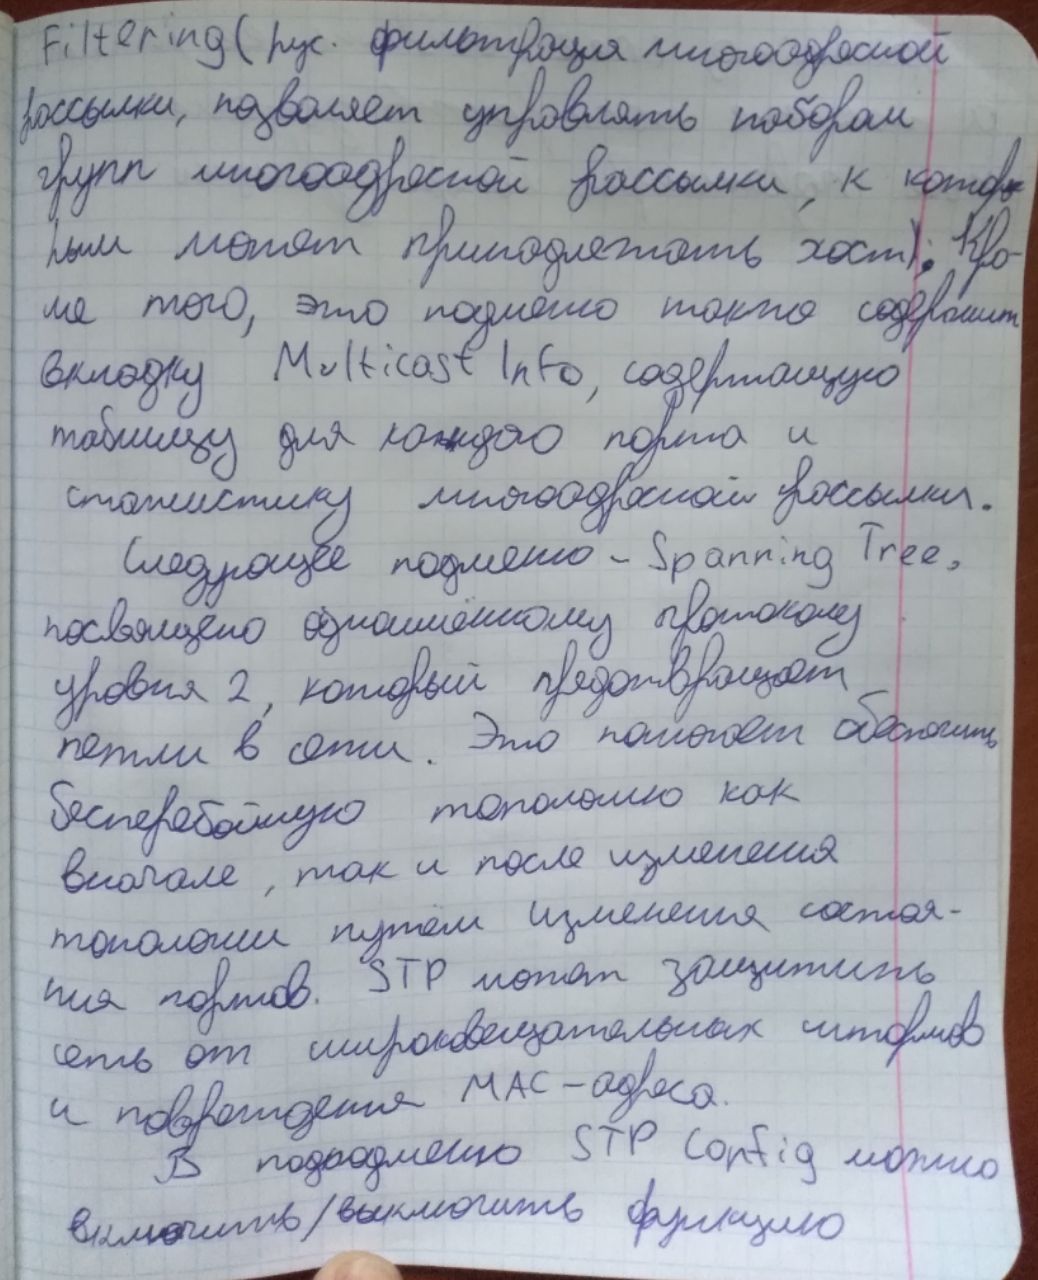 Filtering (рус. фильтрация многоадресной
рассылки, позволяет управлять набором
групп многоадресной рассылки, к котор
рым может принадлежать хост). Кро-
ме того, это подменю также содержит
вкладку Multicast Info, содержащую
таблицу для каждого порта и
статистику многоадресной рассылки.
Следующее подменю - Spanning Tree,
посвящено одноимённому протоколу
уровня 2, который предотвращает
петли в сети. Это помогает обеспечить
бесперебойную топологию как
вначале, так и после изменения
топологии путём изменения состоя-
ния портов. STP может защитить
сеть от широковещательных штормов
и повреждения MAC-адреса.
В подподменю STP Config можно
включить/выключить функцию